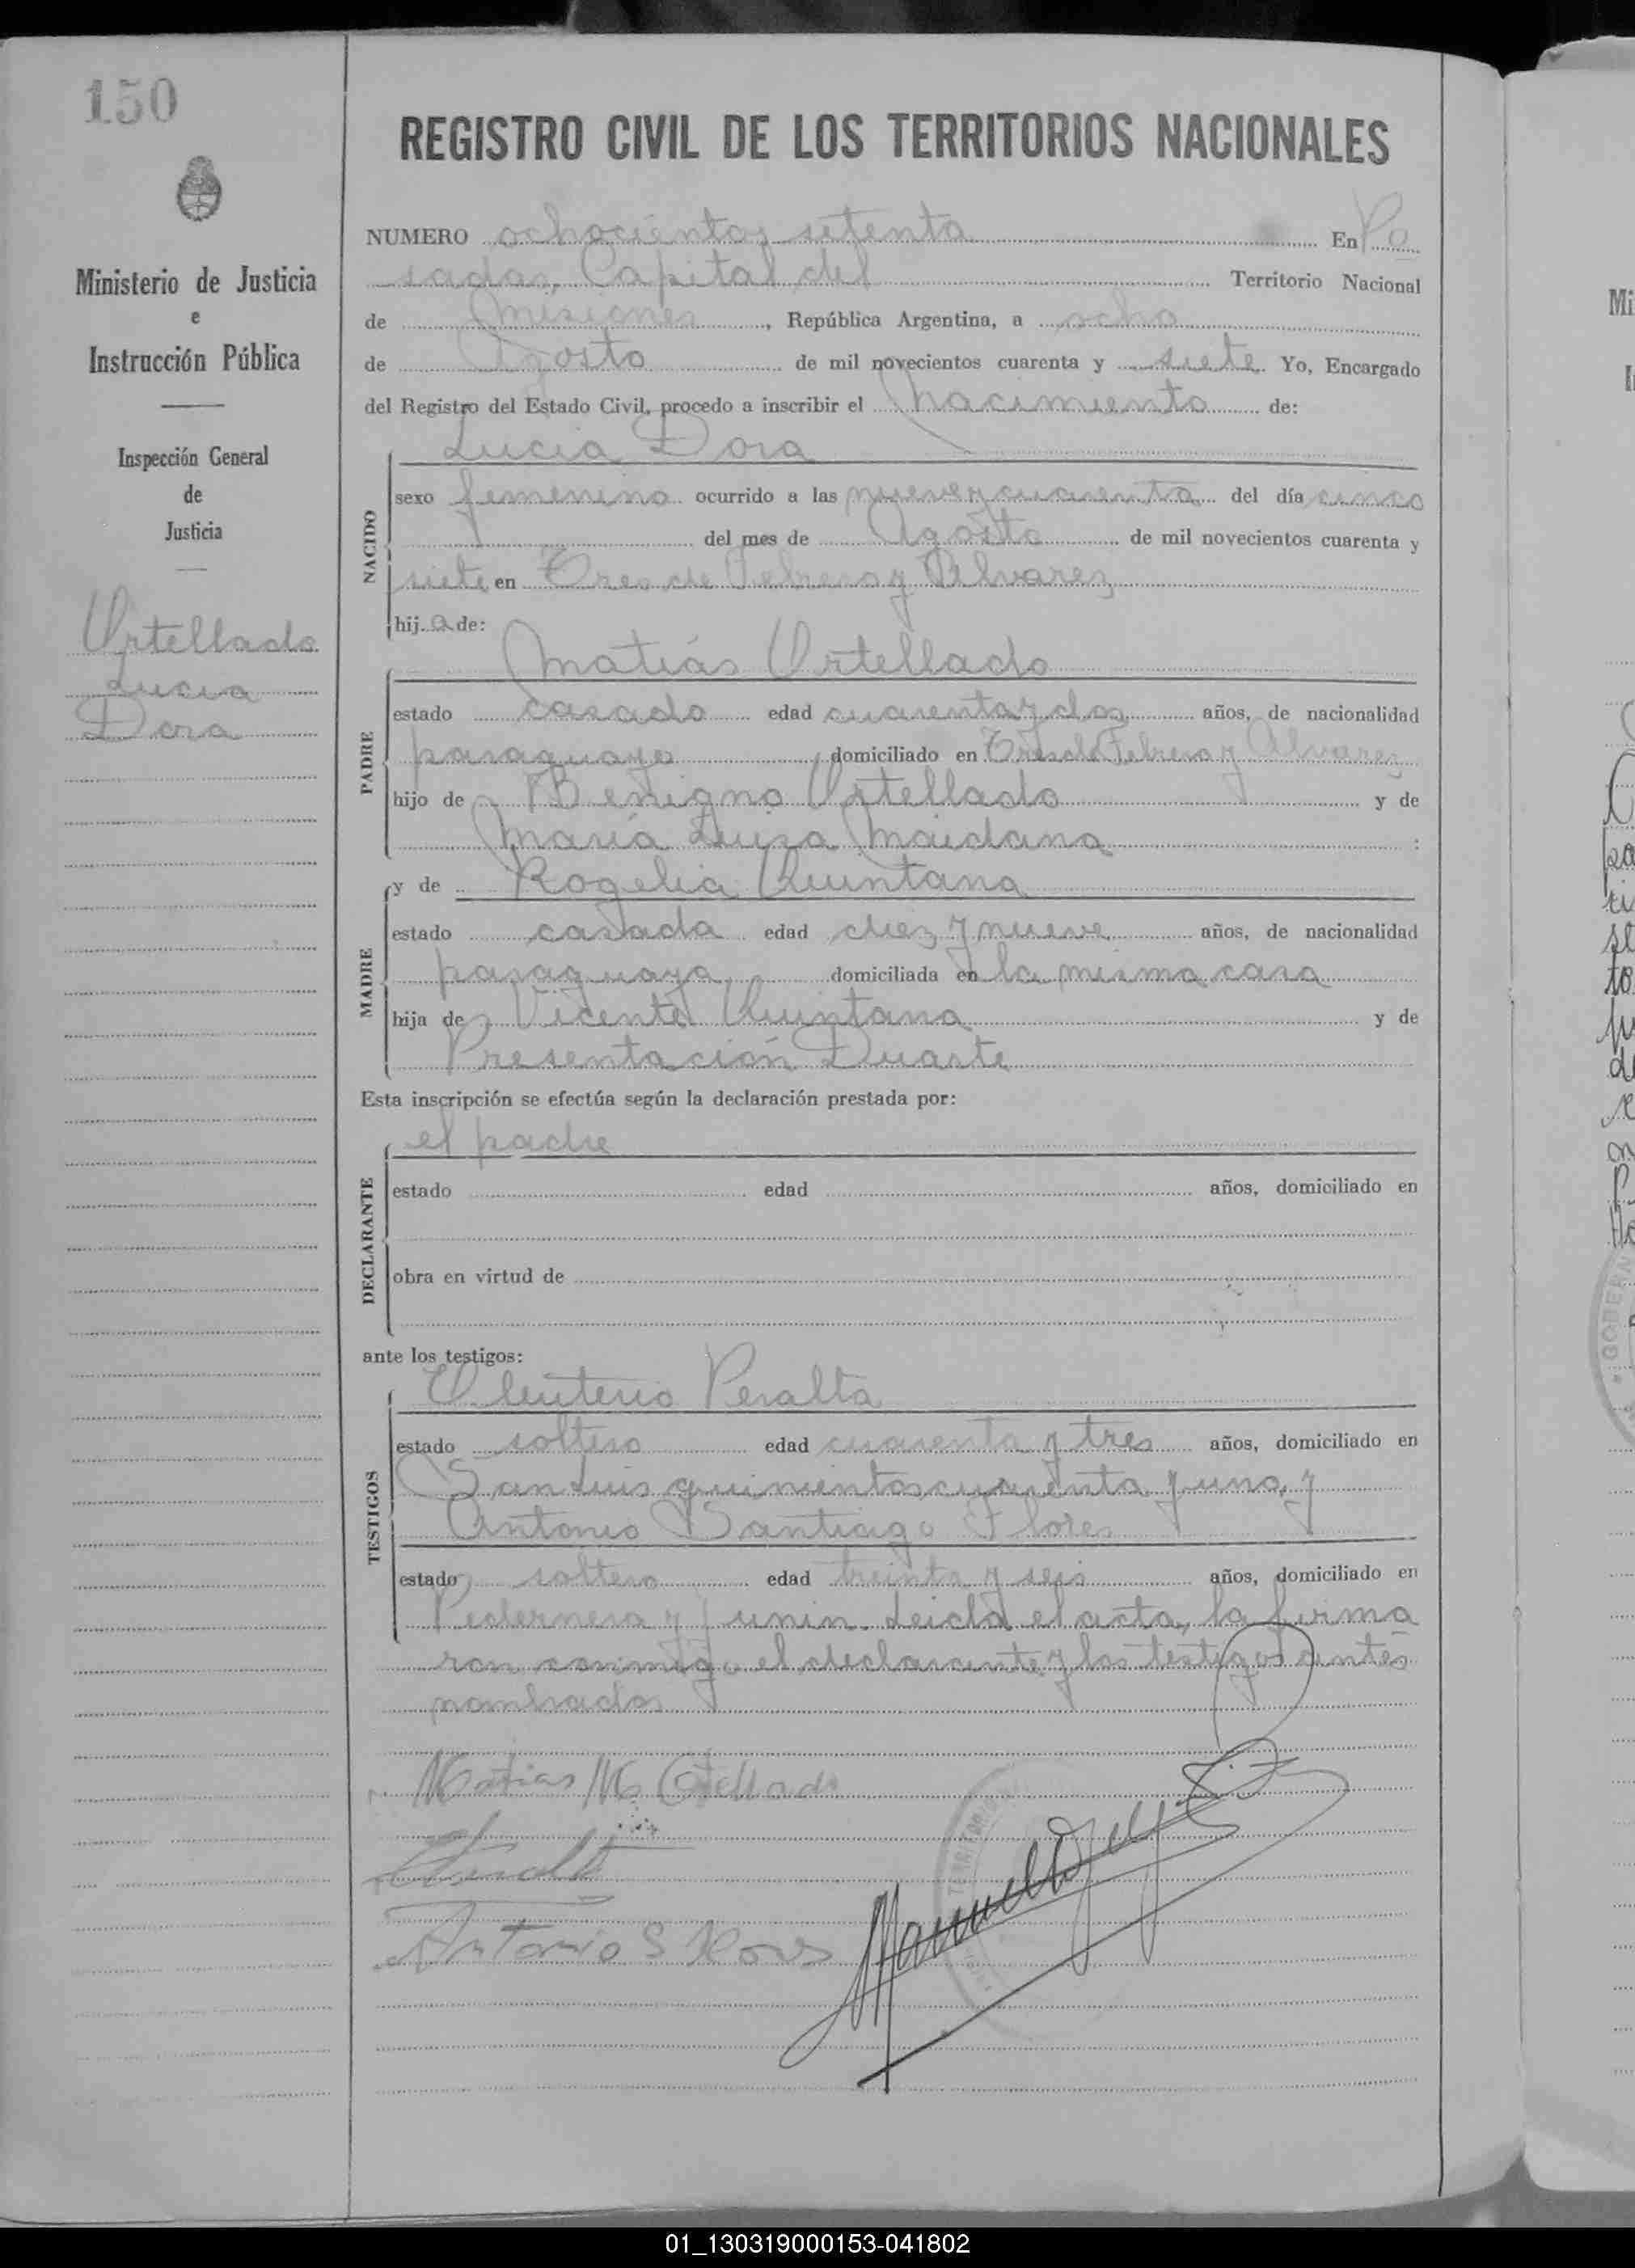 150
Ministerio de Justicia
e
Instrucción Pública
Inspección General
de
Justicia
Ortellado
Lucia
Dora
REGISTRO CIVIL DE LOS TERRITORIOS NACIONALES
NUMERO ochocientos setenta En Po
sadas, Capital del Territorio Nacional
de Misiones, República Argentina, a ocho
de Agosto de mil novecientos cuarenta y siete Yo, Encargado
del Registro del Estado Civil, procedo a inscribir el nacimiento de:
Lucia Dora
NACIDO
sexo femenino ocurrido a las nueve y cuarenta del día cinco
del mes de Agosto de mil novecientos cuarenta y
siete en Tres de Febrero y Alvarez
hij a de:
Matiás Ortellado
PADRE
estado casado edad cuarenta y dos años, de nacionalidad
paraguayo domiciliado en Tres de Febrero y Alvarez
hijo de Benigno Ortellado y de
María Luisa Maidana :
y de Rogelia Quintana
MADRE
estado casada edad diez y nueve años, de nacionalidad
paraguaya domiciliada en la misma casa
hija de Vicente Quintana y de
Presentación Duarte
Esta inscripción se efectúa según la declaración prestada por:
el padre
DECLARANTE
estado edad años, domiciliado en
obra en virtud de
ante los testigos:
Eleuterio Peralta
TESTIGOS
estado soltero edad cuarenta y tres años, domiciliado en
San Luis quinientos cuarenta y uno, y
Antonio Santiago Flores
estado soltero edad treinta y seis años, domiciliado en
Pedernera y Junin. Leída el acta, la firma
ron conmigo el declarante y los testigos antes
nombrados
Matias M Ortellado
Peralta
Antonio S Flores
Manuel
01_130319000153-041802